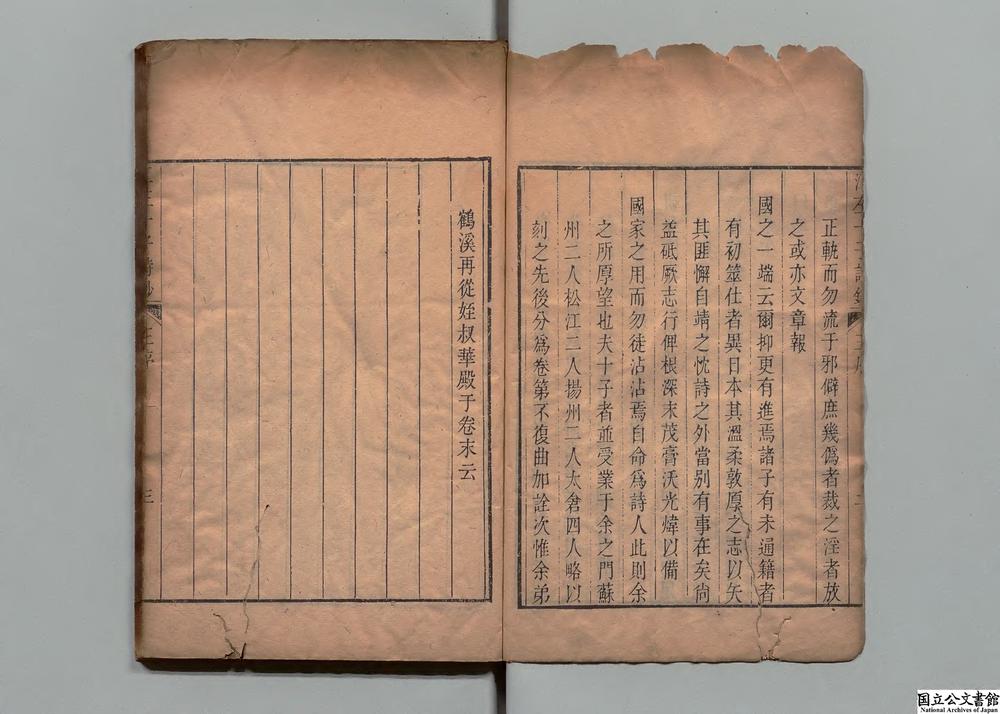 正軌而勿流于邪僻庶幾僞者裁之淫者放
之或亦文章報
國之一端云爾抑更有進焉諸子有未通籍者
有初筮仕者異日本其溫柔敦厚之志以矢
其匪懈自靖之忱詩之外當别有事在矣尚
益砥厥志行俾根深末茂膏沃光煒以備
國家之用而勿徒沾沾焉自命爲詩人此則余
之所厚望也夫十子者並受業于余之門蘇
州二人松江二人揚州二人太倉四人略以
刻之先後分爲卷第不復曲加詮次惟余弟
鶴溪再從姪叔華殿于卷末云
十子詩鈔
序
三
国立公文書館
National Archives of Japan